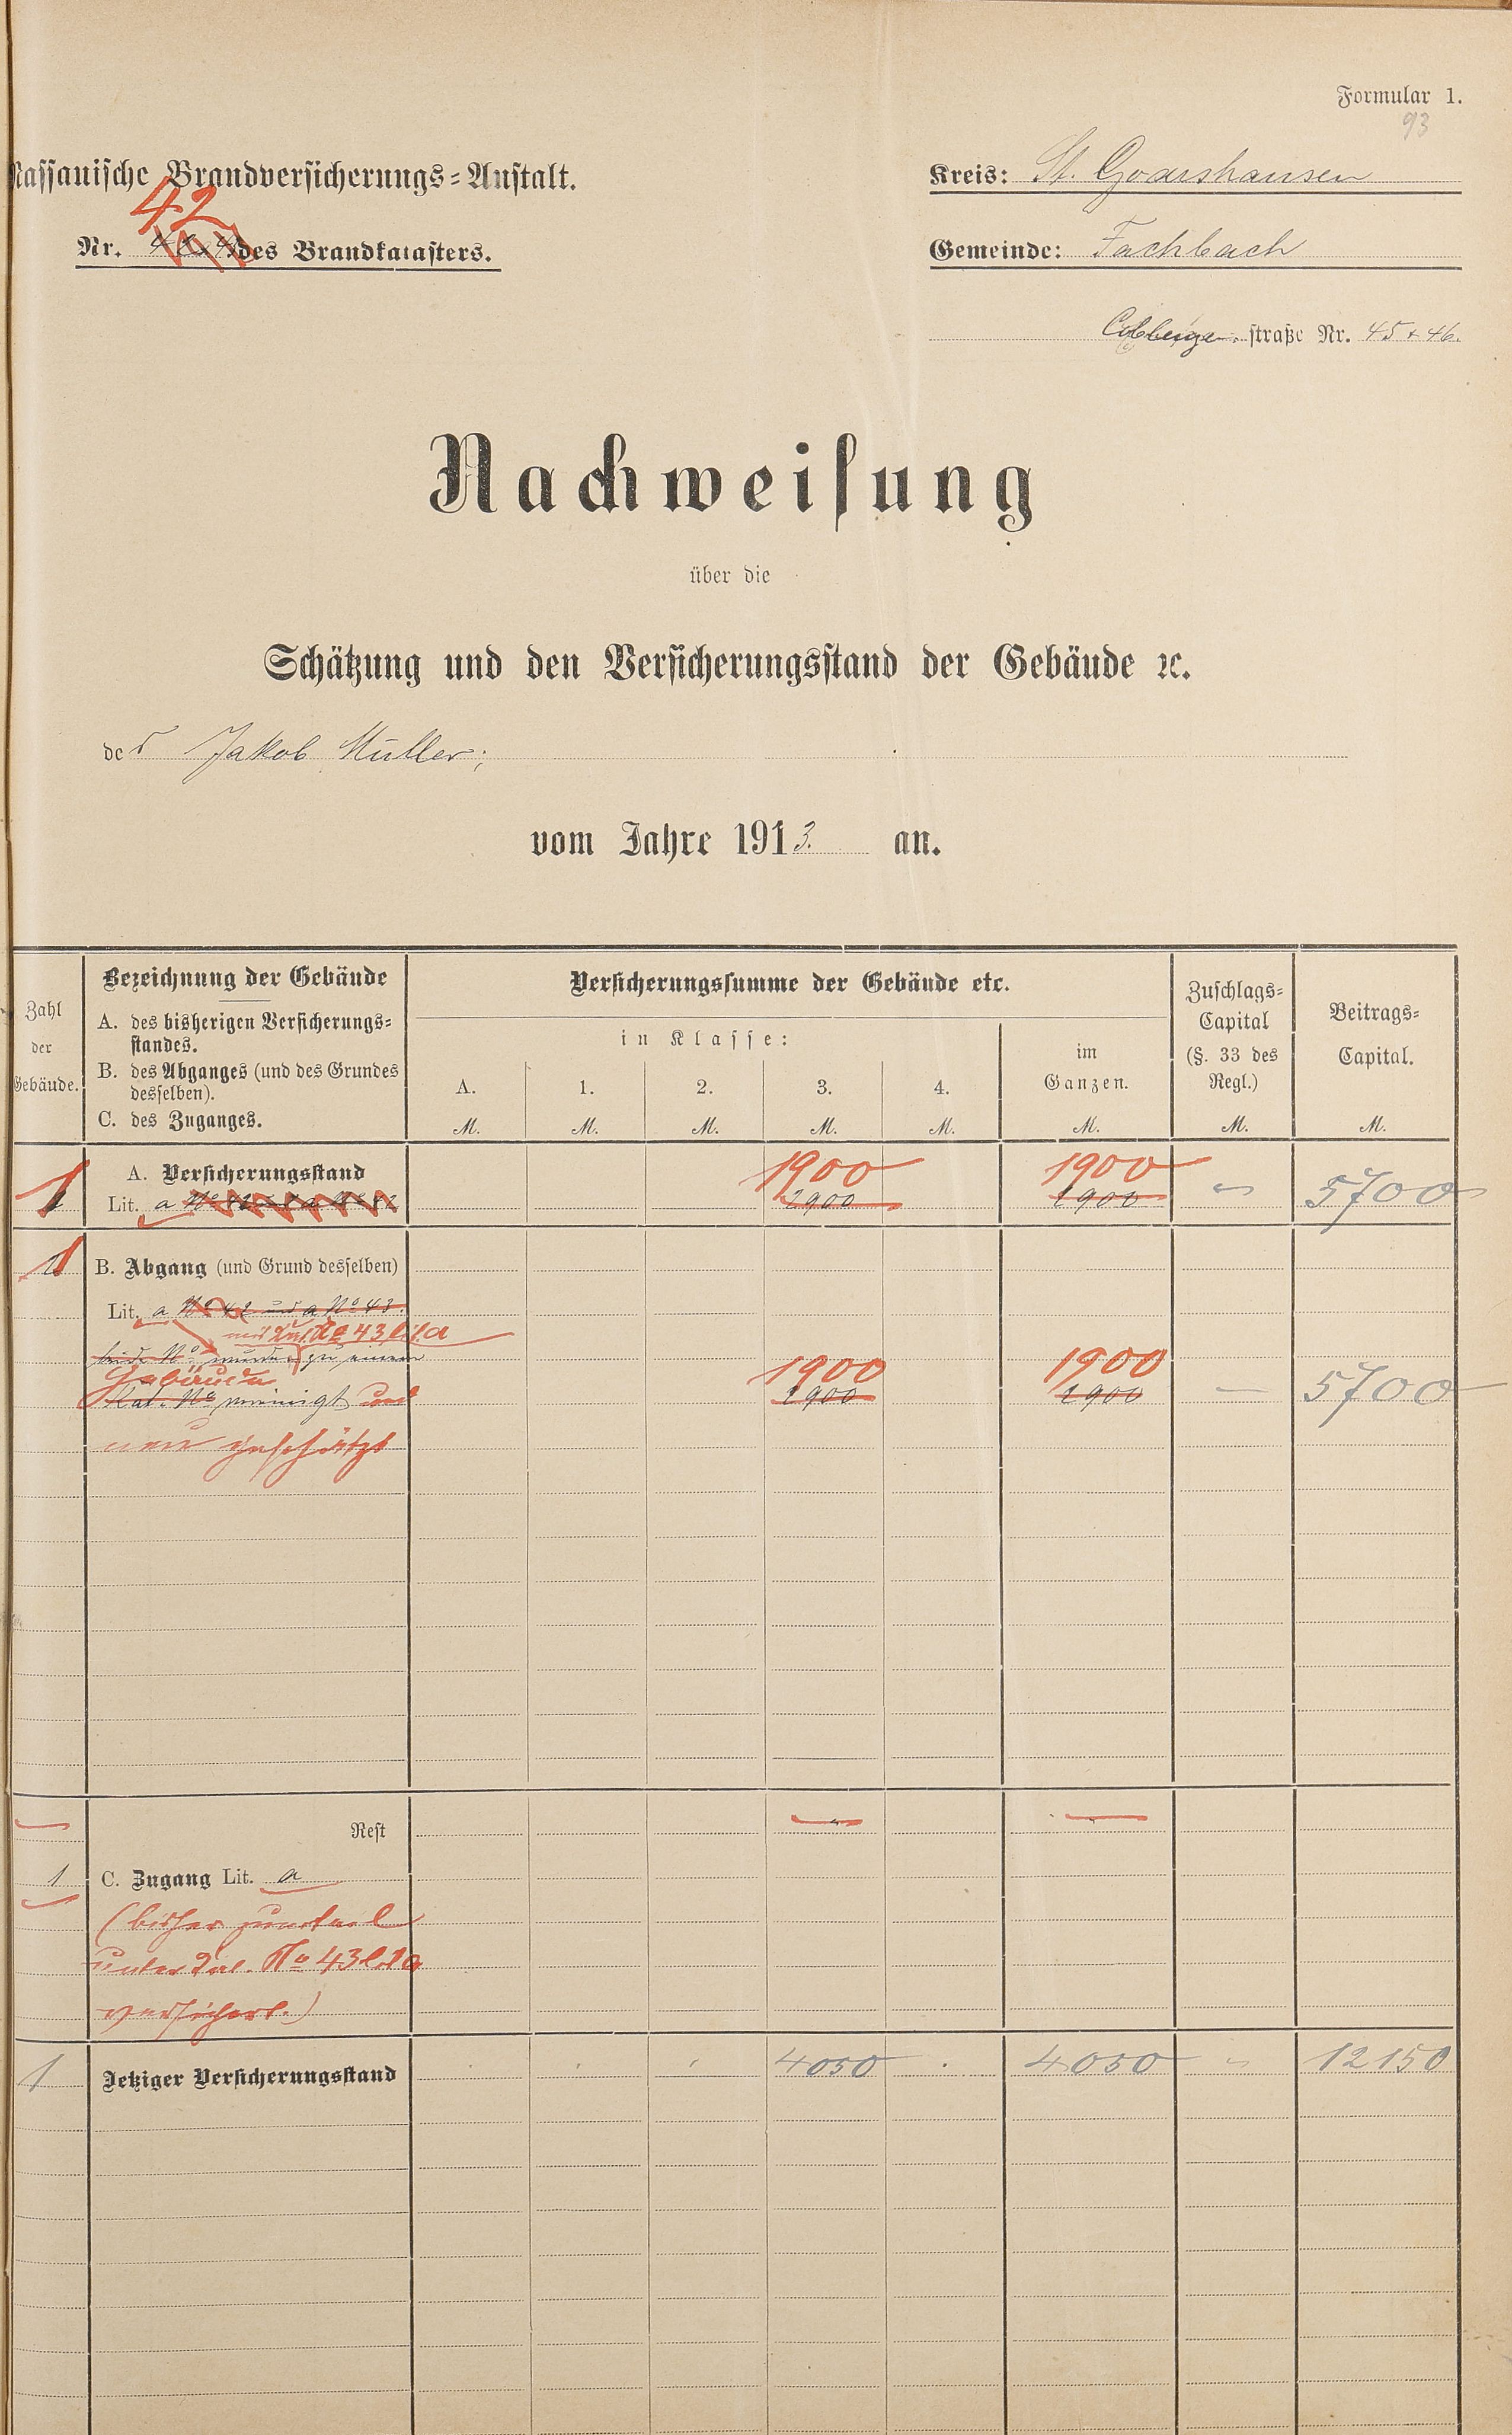 Formular 1.
93
Nassauische Brandversicherungs-Anstalt.
Kreis: St. Goarshausen
42
Nr. des Brandkatasters.
Gemeinde: Fachbach
straße Nr. 45 + 46.
Nachweisung
über die
Schätzung und den Versicherungsstand der Gebäude ꝛc.
des Jakob Müller;
vom Jahre 1913. an.
Zahl der Gebäude.
Bezeichnung der Gebäude
A. des bisherigen Versicherungs-
standes.
B. des Abganges (und des Grundes
desselben).
C. des Zuganges.
Versicherungssumme der Gebäude etc.
in Klasse:
A. 1. 2. 3. 4.
im
Ganzen.
M. M. M. M. M. M.
Zuschlags-
Capital
(§. 33 des
Regl.)
M.
Beitrags-
Capital.
M.
A. Versicherungsstand
1900 1900
1 Lit. a 5700
1 B. Abgang (und Grund desselben)
Lit. a No 42 und a No 43.
mit No 43 lit. a
beide No wurden zu einem
Gebäude 1900 1900
Kat. No vereinigt und 1900 1900 — 5700
neu geschätzt
— Rest — —
1 C. Zugang Lit. a
(bisher
unter No 43 lit a
versichert.)
1 Jetziger Versicherungsstand 4050 4050 12150